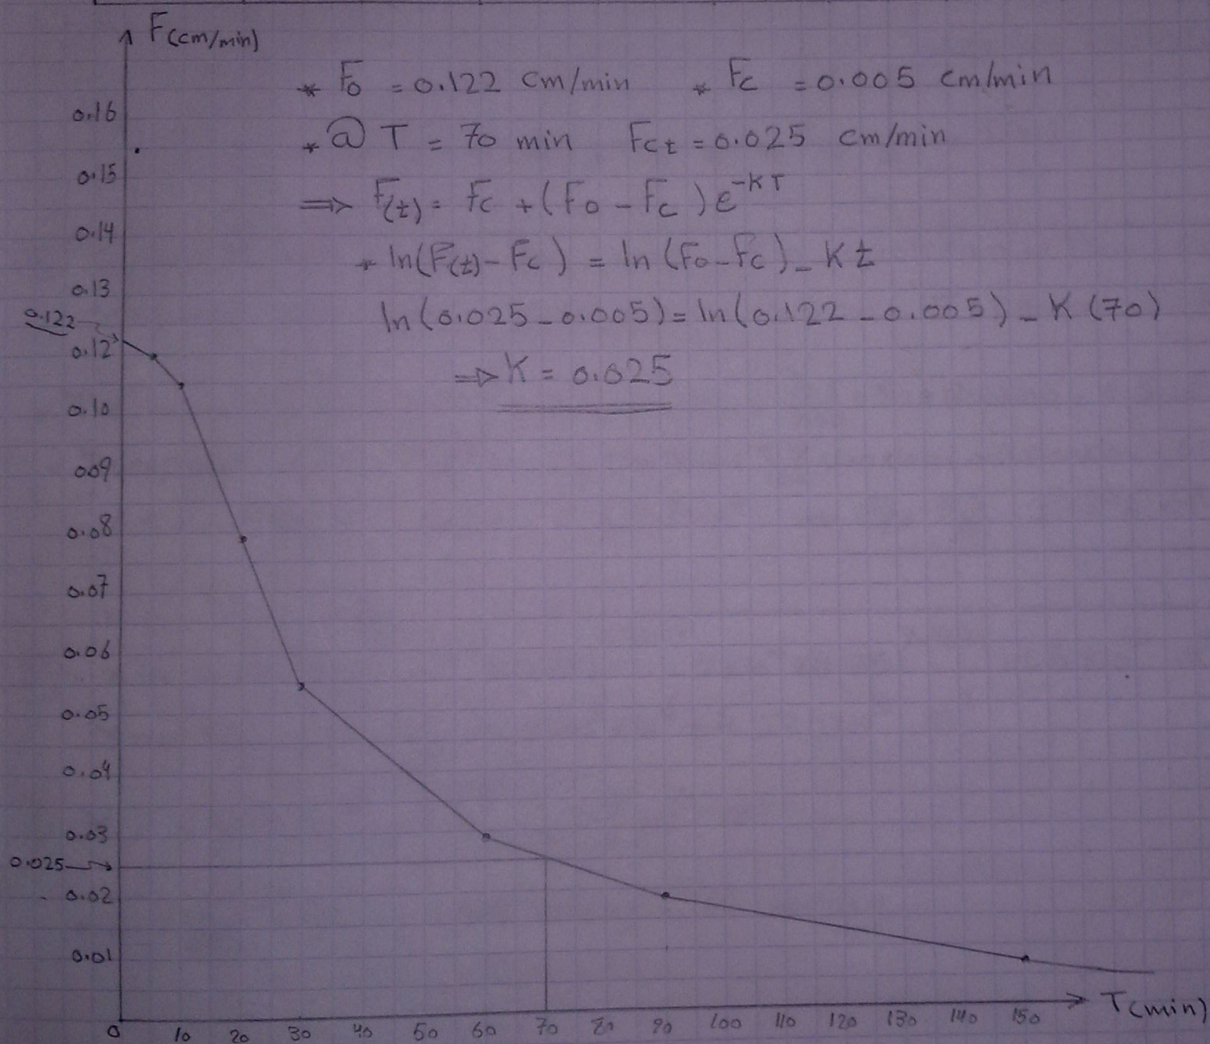 F(cm/min)
* Fo = 0.122 cm/min * Fc = 0.005 cm/min
* @ T = 70 min Fct = 0.025 cm/min
⇒ F(t) = Fc + (Fo - Fc) e^-KT
* ln(F(t) - Fc) = ln(Fo - Fc) - Kt
ln(0.025 - 0.005) = ln(0.122 - 0.005) - K(70)
⇒ K = 0.025
0.16
0.15
0.14
0.13
0.122
0.12
0.10
0.09
0.08
0.07
0.06
0.05
0.04
0.03
0.025
0.02
0.01
0 10 20 30 40 50 60 70 80 90 100 110 120 130 140 150 T(min)